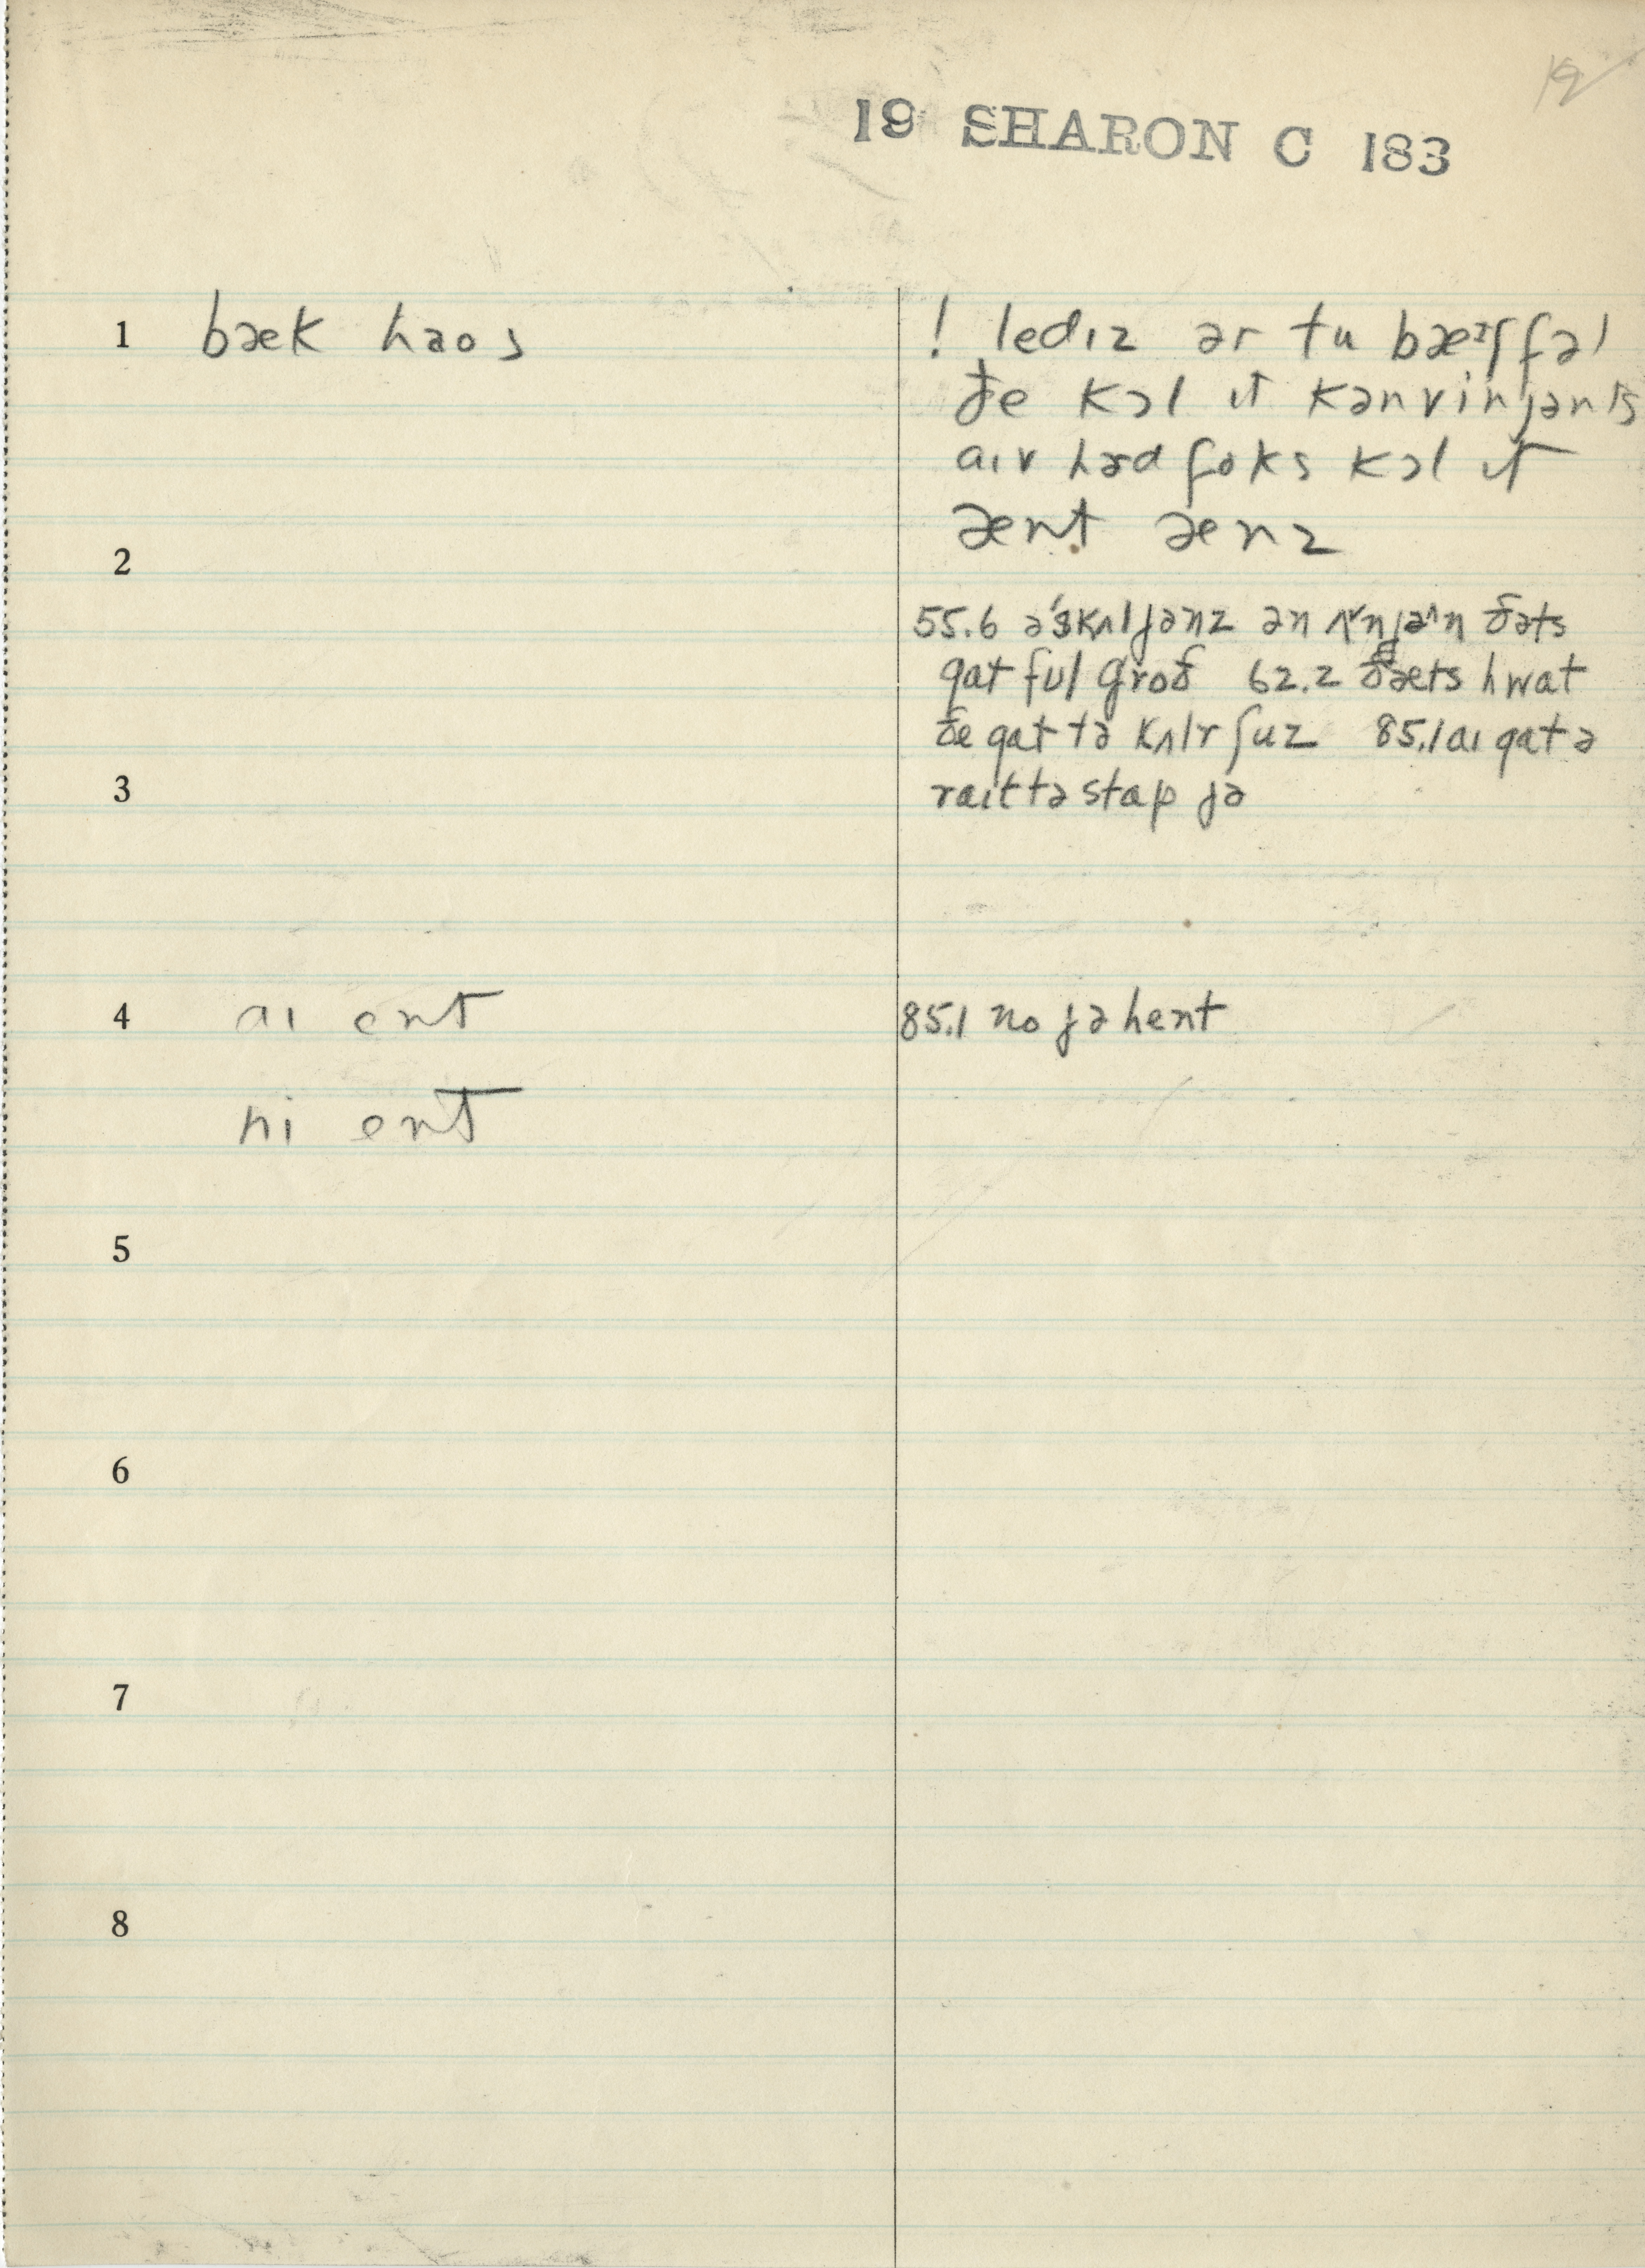 19
19 SHARON C 183
1 bæk haos
! ledɪz ər tu bæɪʃfəl
ðe kɔl ɪt kənvinjənts
aɪv həd foks kɔl ɪt
ænt ænz
2
55.6 ə'skʌljənz ən ʌ'njə^n ðəts
gat ful groð 62.2 ðæts hwat
ðe gat tə kʌlr ʃuz 85.1 aɪ gat ə
3 raɪt tə stap jə
4 aɪ ent
85.1 no jə hent
hi ent
5
6
7
8